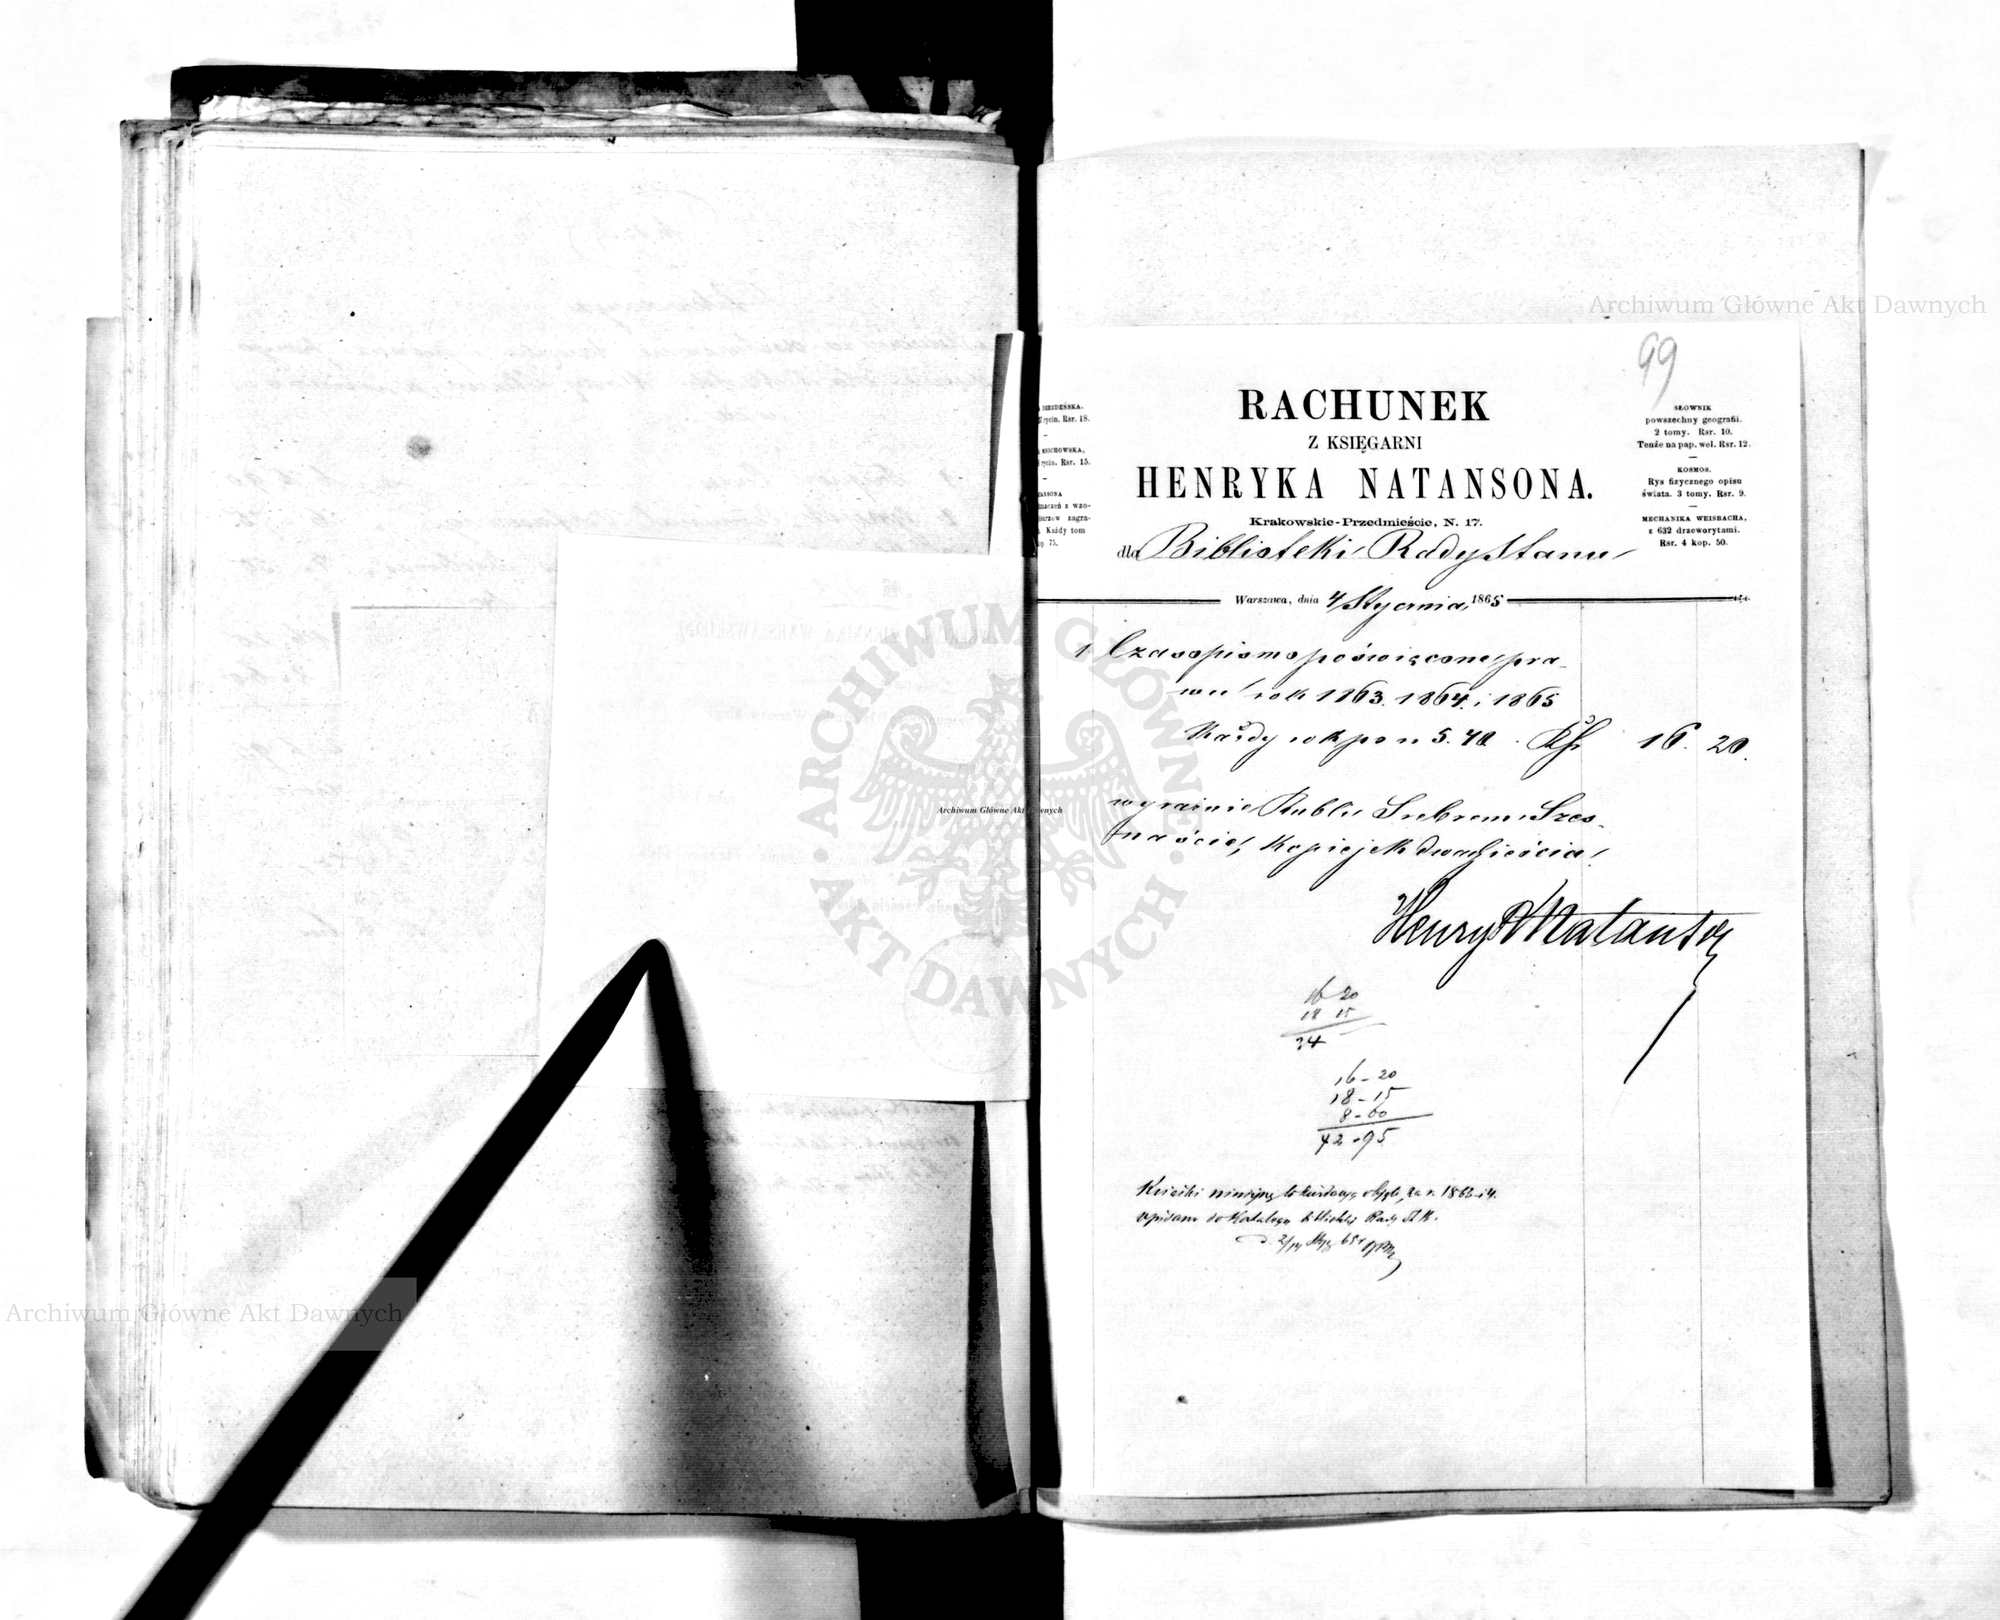 99
RACHUNEK
Z KSIĘGARNI
HENRYKA NATANSONA.
Krakowskie-Przedmieście, N. 17.
dla Biblioteki Rady Stanu
DREZDEŃSKA.
rycin. Rsr. 18.
rycin. Rsr. 15.
Każdy tom
75.
SŁOWNIK
powszechny geografii.
2 tomy. Rsr. 10.
Tenże na pap. wel. Rsr. 12.
KOSMOS.
Rys fizycznego opisu
świata. 3 tomy. Rsr. 9.
MECHANIKA WEISBACHA,
z 632 drzeworytami.
Rsr. 4 kop. 50.
Warszawa, dnia 4 Stycznia 1865
1 Czasopismo poświęcone pra-
wu rok 1863. 1864. i 1865
Każdy rok po rs 5.40 . Rsr 16. 20.
wyraźnie Rubli Srebrem Szes-
naście, Kopiejek dwadzieścia
Henryk Natanson
16 20
18 15
34
16-20
18-15
8-60
42-95
Książki niniejszą objęte, za r. 1863-i4.
wpisano do Katalogu biblioteki Rady St.
d. 2/14 Stycz 65 r
Archiwum Główne Akt Dawnych
Archiwum Główne Akt Dawnych
Archiwum Główne Akt Dawnych
ARCHIWUM GŁÓWNE AKT DAWNYCH